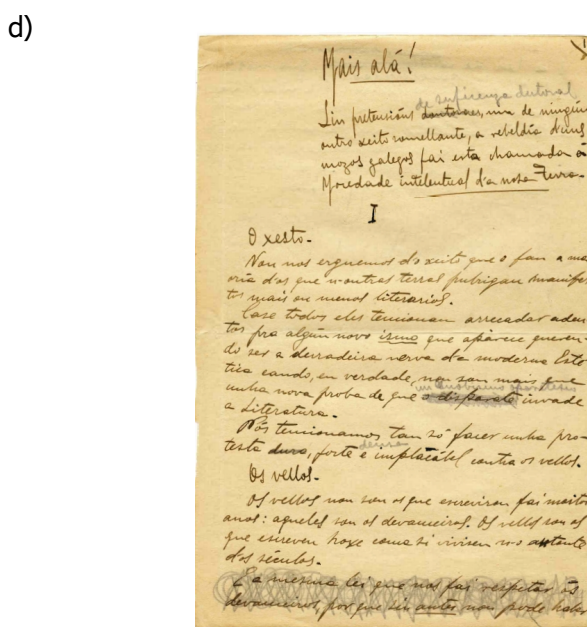 d)
Mais alá!
de suficenza dutoral
Sin pretensións doutoraes, nin de ningún
outro xeito somellante, a rebeldía d'uns
mozos galegos fai esta chamada á
Mocedade intelentual d'a nosa Terra.
I
O xesto.-
Non nos erguemos do xeito que o fan a ma
oría d'os que n-outras terras pubrigan manifes
tos mais ou menos literarios.
Case todos eles tencionan arrecadar adeu
tos pra algún novo ismo que aparece queren-
do ser a derradeira nerva d'a moderna Esté
tica cando, en verdade, non son mais que
unha nova proba de que o disparate invade
a Literatura.
Nós tencionamos tan só facer unha pro-
testa dura, forte e implacábel contra os vellos.
Os vellos.-
Os vellos non son os que escreviron fai moitos
anos: aqueles son os devanceiros. Os vellos son os
que escreven hoxe coma si vivisen n-o antonte
d'os séculos.
E a mesma lei que nos fai respetar ós
devanceiros, por que sin antes non pode haber